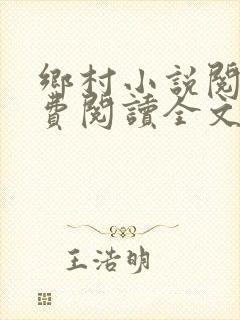 鄉村小說閱
費閱讀全文
王浩明